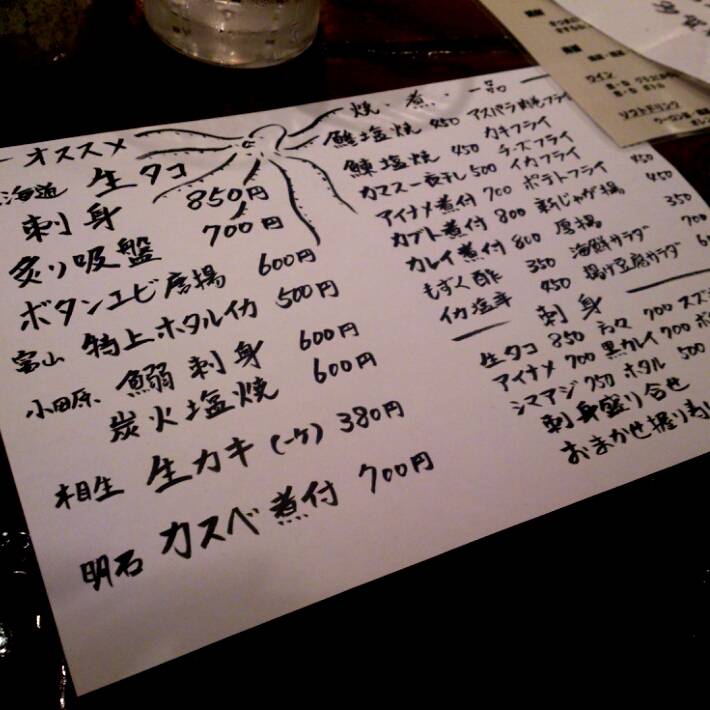 オススメ
海道 生タコ
刺身 850円
炙り吸盤 700円
ボタンエビ唐揚 600円
富山 特上ホタルイカ 500円
小田原 鰯刺身 600円
炭火塩焼 600円
相生 生カキ(一ケ) 380円
明石 カスベ煮付 700円
焼・煮・一品
塩焼 450 アスパラ肉巻フライ
塩焼 450 カキフライ
カマス一夜干し 500 チーズフライ
アイナメ煮付 700 イカフライ
カブト煮付 800 ポテトフライ 450
カレイ煮付 800 新じゃが揚 450
もずく酢 350 唐揚 350
イカ塩辛 450 海鮮サラダ 700
揚げ豆腐サラダ
刺身
生タコ 850 700 スズ
アイナメ 700 黒カレイ 700 ボ
シマアジ 750 ホタル 500
刺身盛り合せ
おまかせ握り寿
ワイン
ソフトドリンク